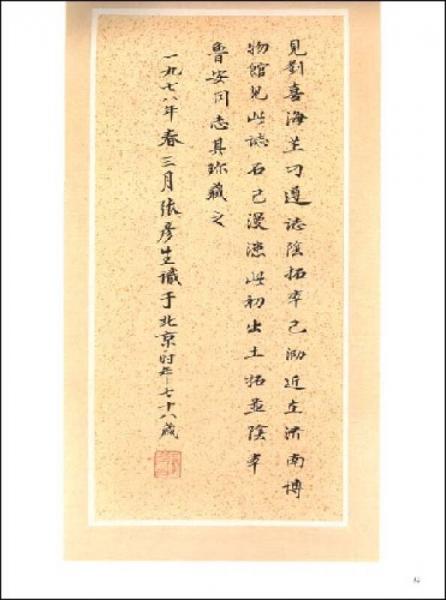 見劉喜海刁遵誌陰拓本已泐近在濟南博
物館見此誌石已漫漶此初出土拓並陰本
魯安同志其珍藏之
一九七八年春三月張彥生識于北京時年七十八歲